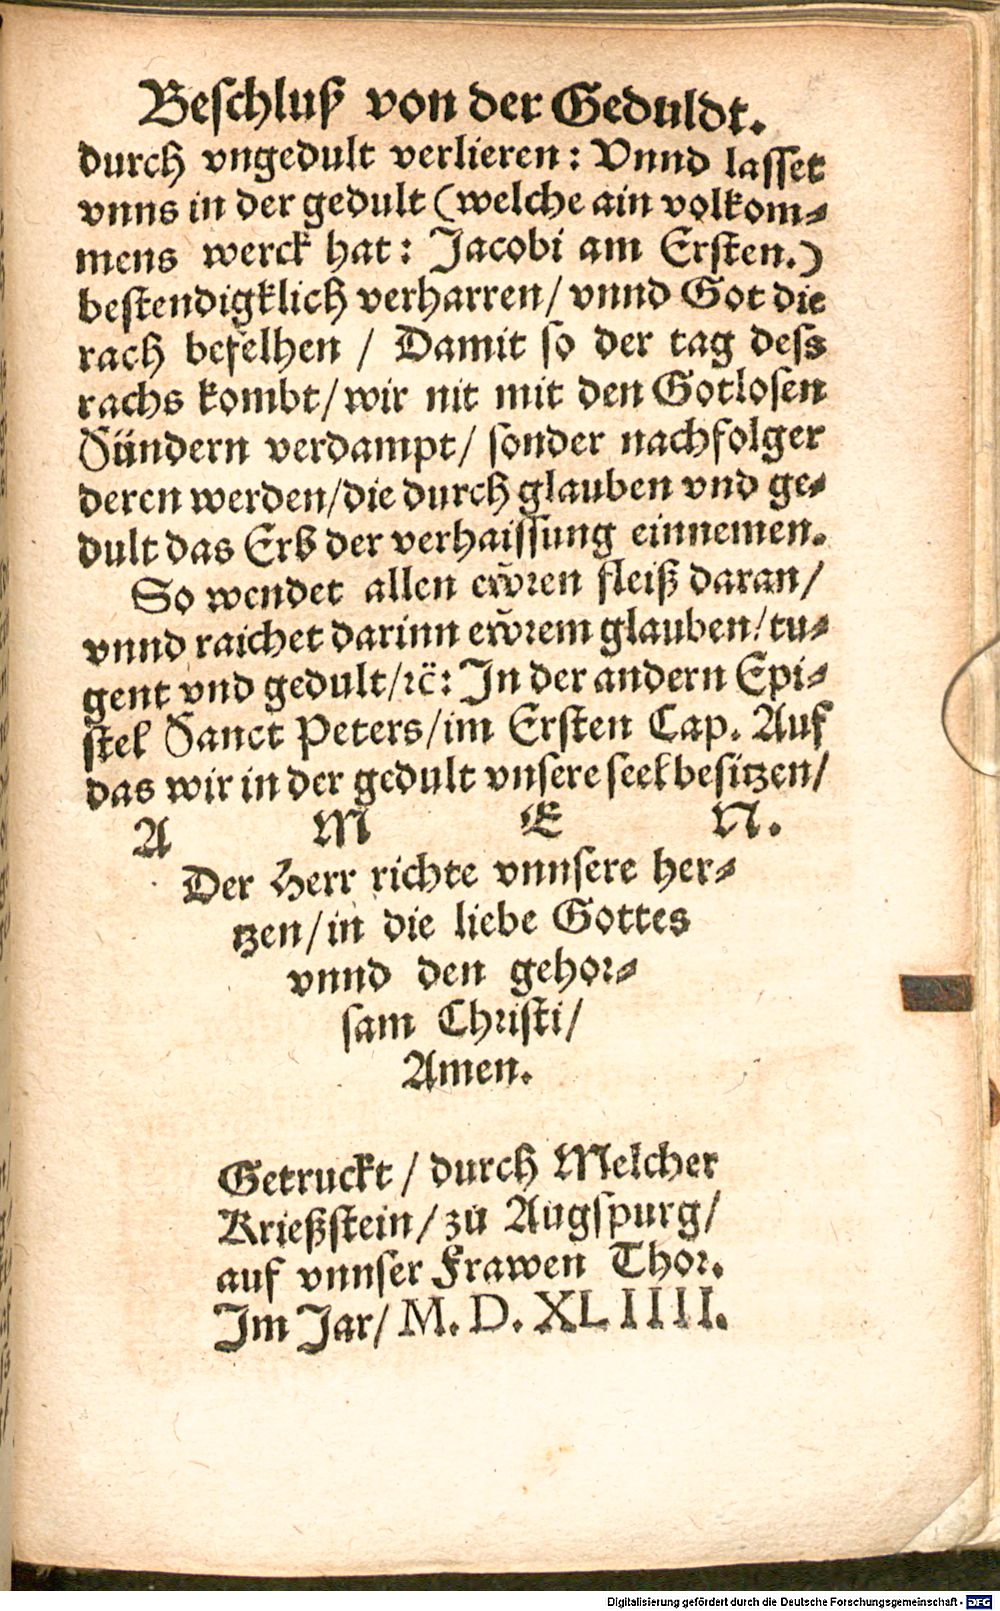 Beschluß von der Geduldt.
durch vngedult verlieren: Vnnd lasset
vnns in der gedult (welche ain volkom⸗
mens werck hat: Jacobi am Ersten.)
bestendigklich verharren/ vnnd Got die
rach befelhen / Damit so der tag dess
rachs kombt/ wir nit mit den Gotlosen
Sündern verdampt/ sonder nachfolger
deren werden/die durch glauben vnd ge⸗
dult das Erb der verhaissung einnemen.
So wendet allen ewͦren fleiß daran/
vnnd raichet darinn ewͦrem glauben/ tu⸗
gent vnd gedult/ꝛc̈: In der andern Epi⸗
stel Sanct Peters/im Ersten Cap. Auf
das wir in der gedult vnsere seel besitzen/
A M E N.
Der Herr richte vnnsere her⸗
tzen/in die liebe Gottes
vnnd den gehor⸗
sam Christi/
Amen.
Getruckt / durch Melcher
Krießstein/ zů Augspurg/
auf vnnser Frawen Thor.
Im Jar/ M. D. XLIIII.
Digitalisierung gefördert durch die Deutsche Forschungsgemeinschaft - DFG